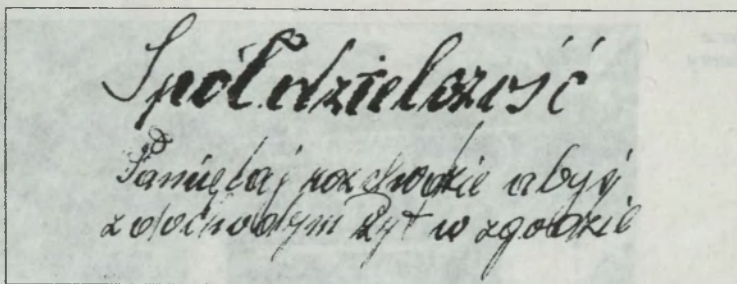 Spółdzielczość
Pamiętaj rozchodzie abyś
z dochodym żył w zgodzie